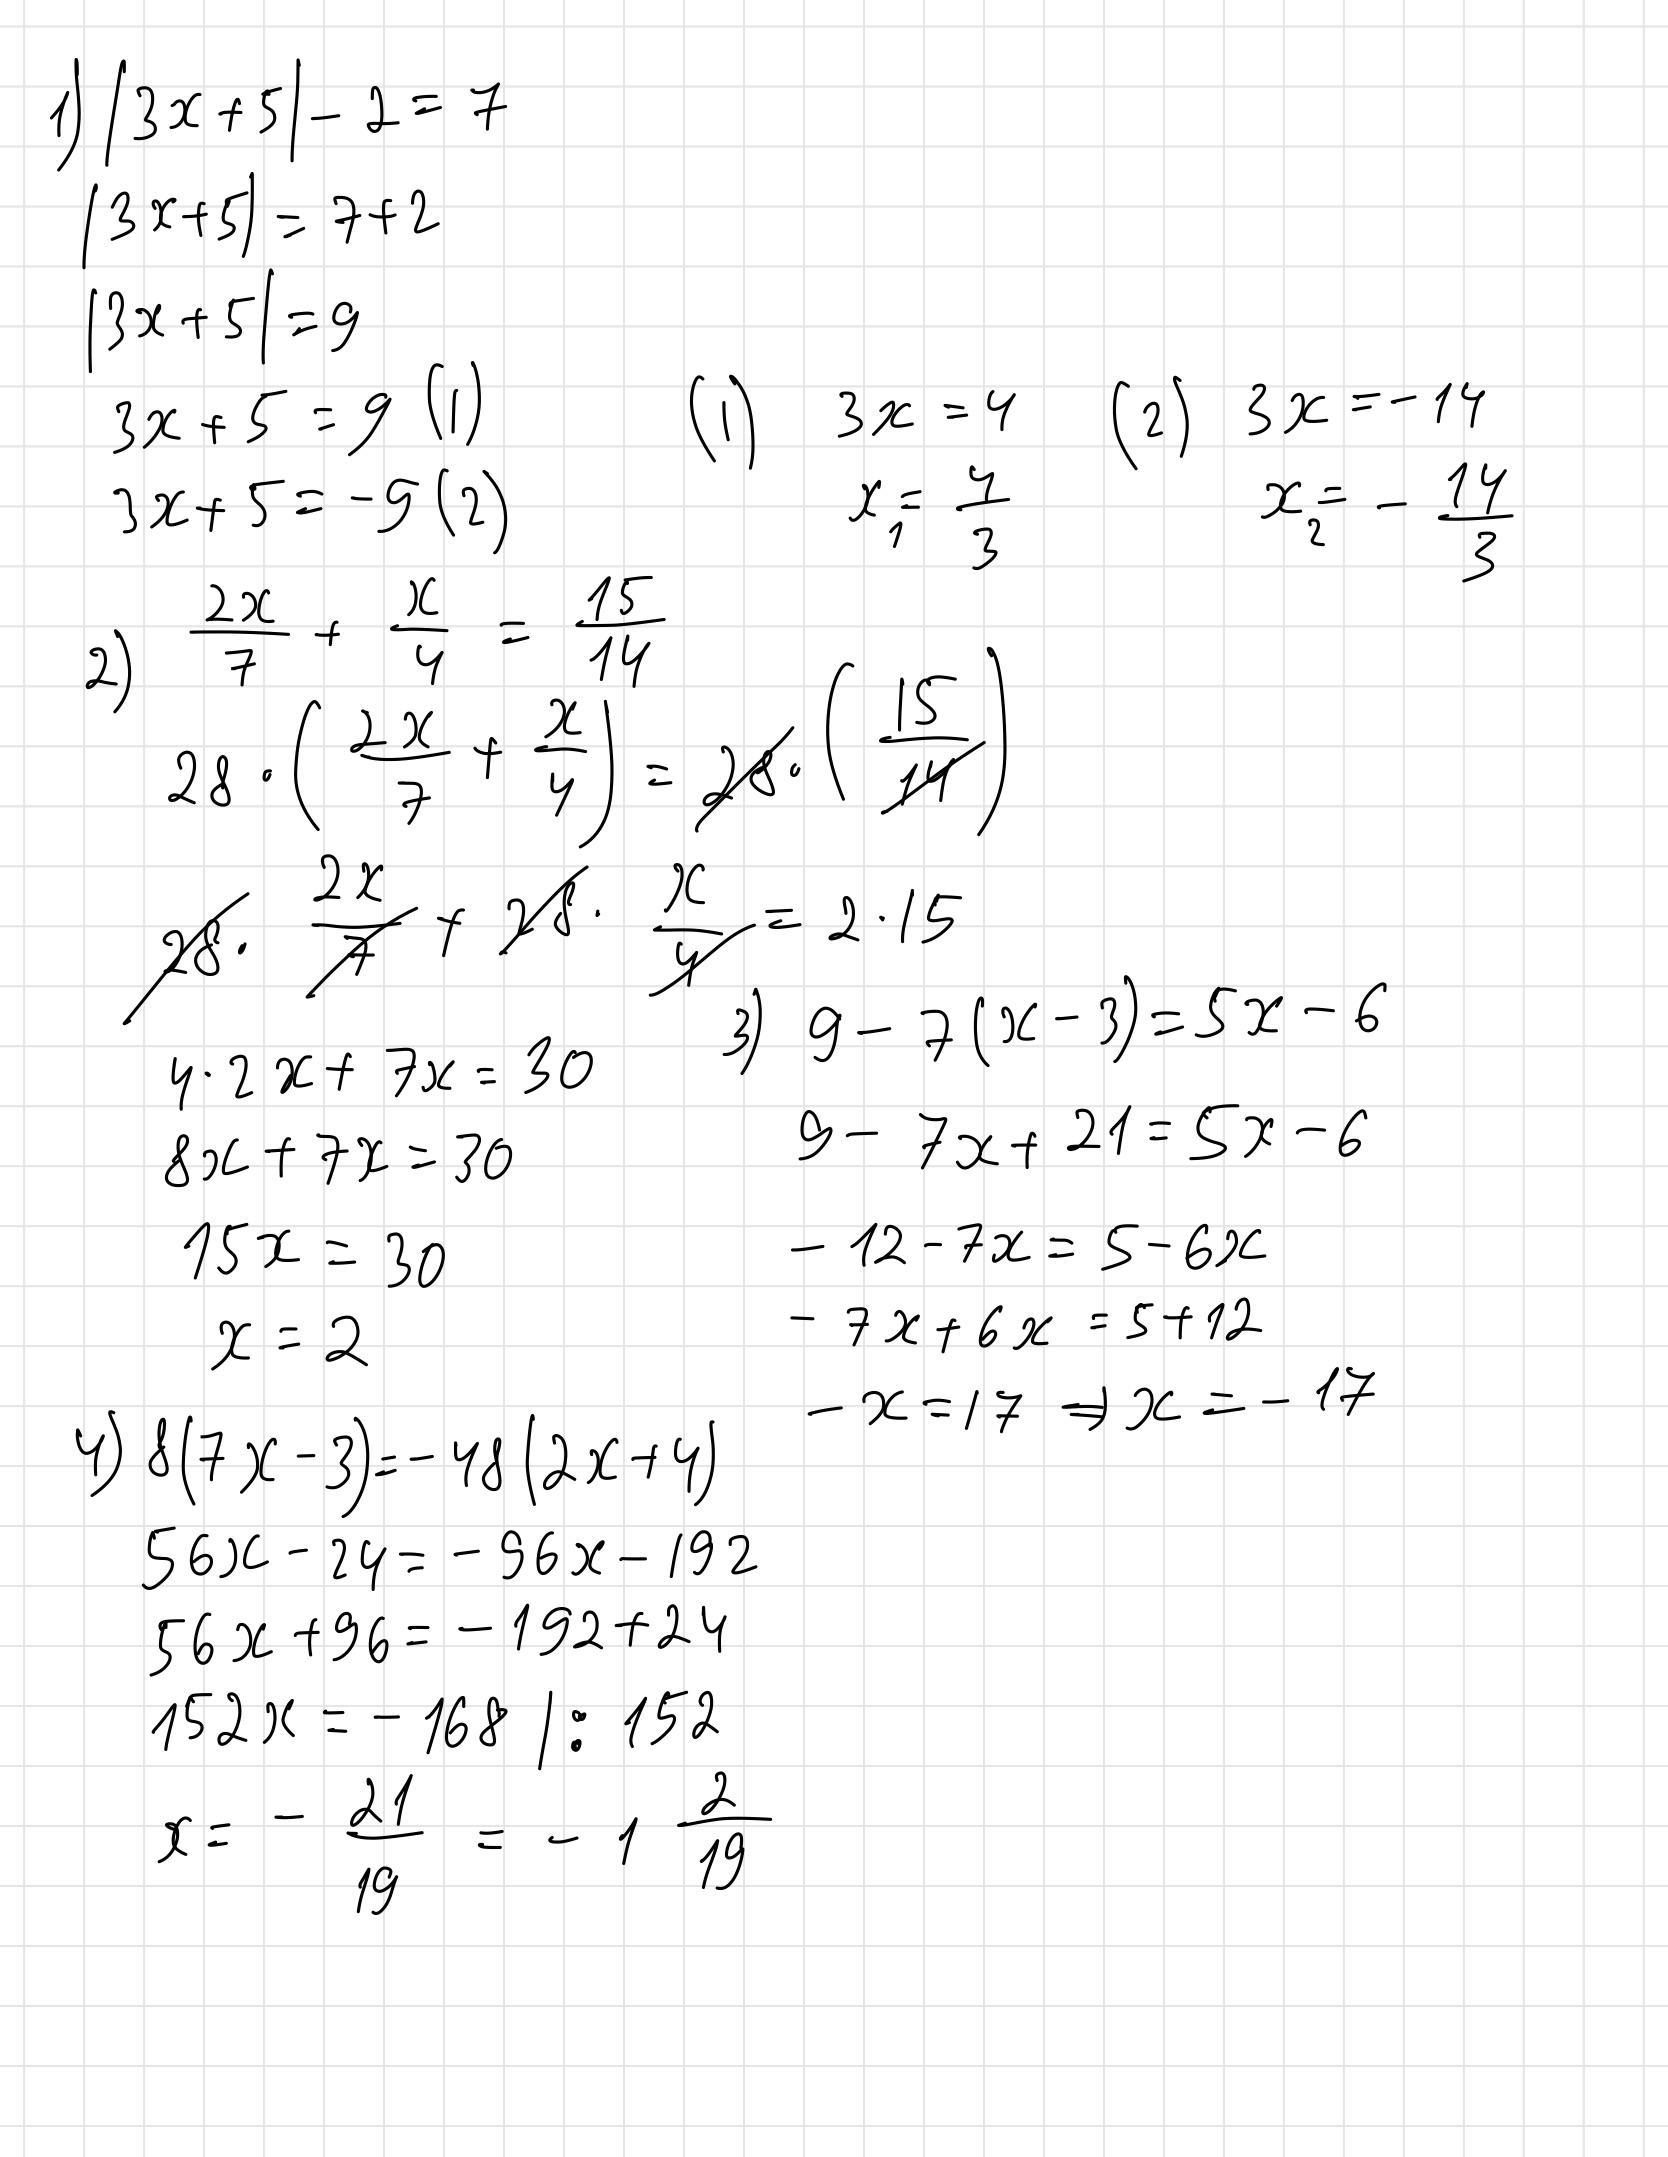 1) |3x+5| - 2 = 7
|3x+5| = 7+2
|3x+5| = 9
3x+5 = 9 (1)
3x+5 = -9 (2)
(1) 3x = 4
x₁ = 4/3
(2) 3x = -14
x₂ = - 14/3
2) 2x/7 + x/4 = 15/14
28 · (2x/7 + x/4) = 28 · (15/14)
28 · 2x/7 + 28 · x/4 = 2·15
4·2x + 7x = 30
8x + 7x = 30
15x = 30
x = 2
3) 9 - 7(x-3) = 5x - 6
9 - 7x + 21 = 5x - 6
- 12 - 7x = 5 - 6x
- 7x + 6x = 5+12
- x = 17 ⇒ x = - 17
4) 8(7x-3) = -48(2x+4)
56x - 24 = -96x - 192
56x + 96 = -192+24
152x = -168 |: 152
x = - 21/19 = - 1 2/19